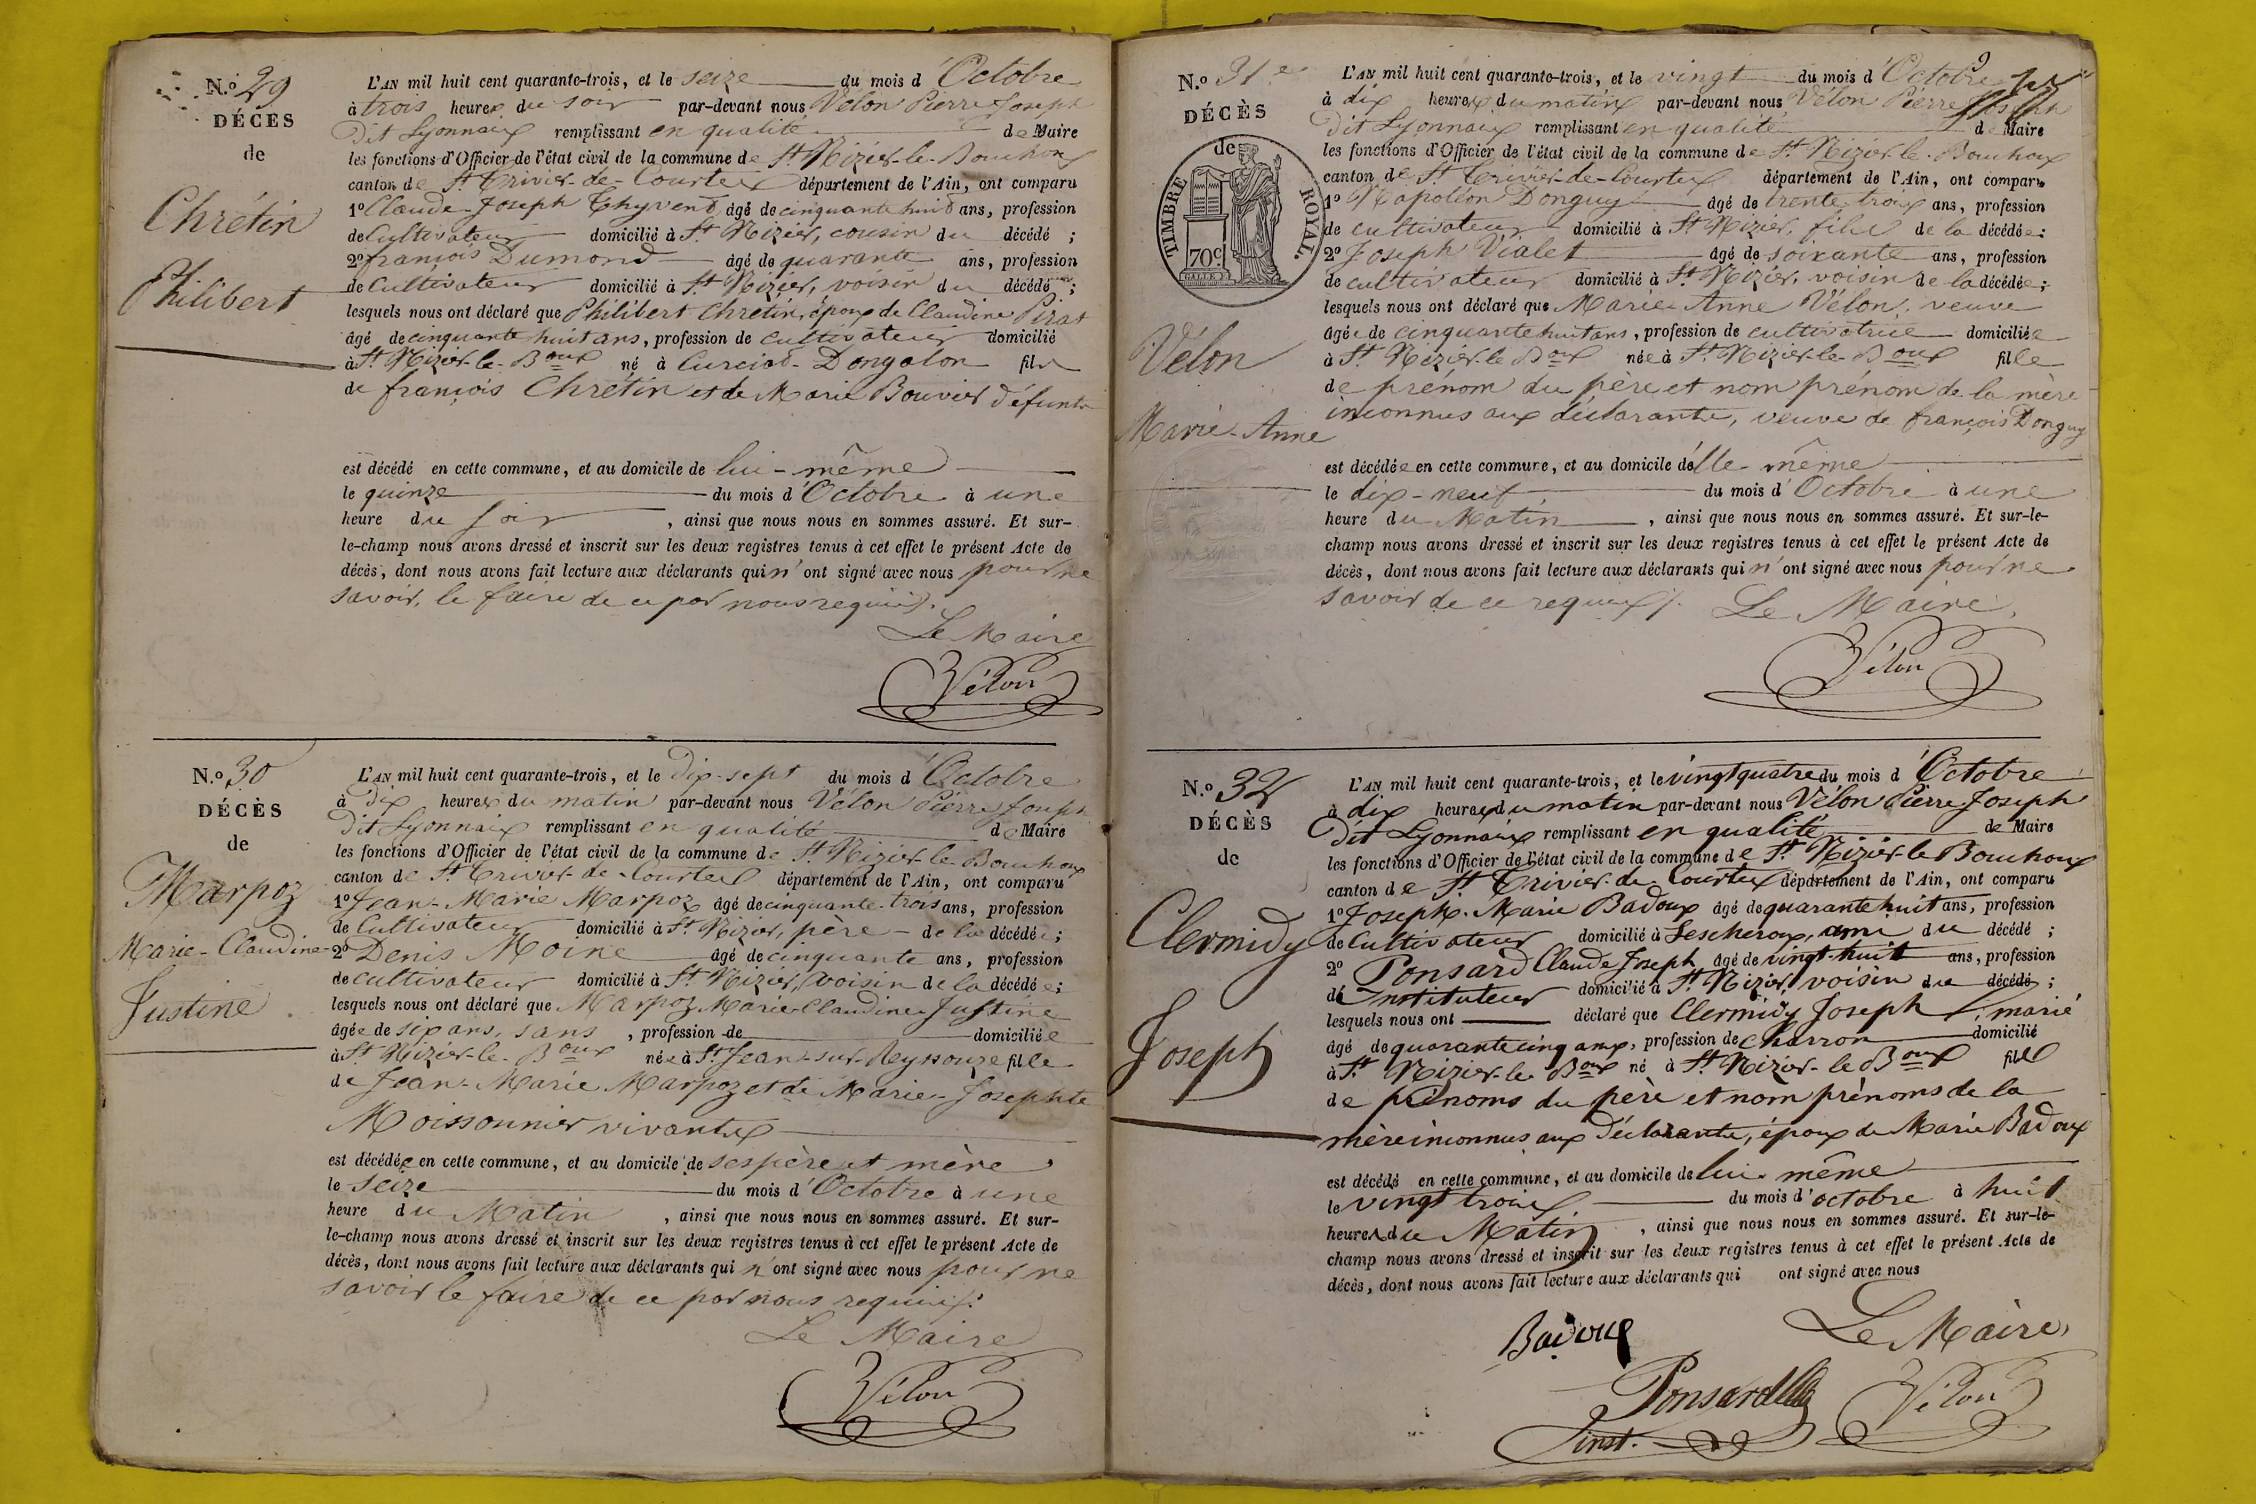 N.º 29
DÉCÈS
de
Chrétin
Philibert
L'AN mil huit cent quarante-trois, et le seize du mois d'Octobre
à trois heures du soir par-devant nous Vélon Pierre Joseph
Dit Lyonnais remplissant en qualité de Maire
les fonctions d'Officier de l'état civil de la commune de St Nizier-le-Bouchoux
canton de St Trivier-de-Courtes département de l'Ain, ont comparu
1º Claude-Joseph Thyvend, âgé de cinquante huit ans, profession
de Cultivateur domicilié à St Nizier, cousin du décédé ;
2º françois Dumond âgé de quarante ans, profession
de Cultivateur domicilié à St Nizier, voisin du décédé ;
lesquels nous ont déclaré que Philibert Chrétin, époux de Claudine Pirat
âgé de cinquante huit ans, profession de Cultivateur domicilié
à St Nizier-le-Boux né à Curciat-Dongalon fils
de françois Chrétin et de Marie Bouvier défunts
est décédé en cette commune, et au domicile de lui-même
le quinze du mois d'Octobre à une
heure du soir, ainsi que nous nous en sommes assuré. Et sur-
le-champ nous avons dressé et inscrit sur les deux registres tenus à cet effet le présent Acte de
décès, dont nous avons fait lecture aux déclarants qui n'ont signé avec nous pour ne
savoir le faire de ce par nous requis.
Le Maire
Vélon
N.º 30
DÉCÈS
de
Marpoz
Marie-Claudine
Justine
L'AN mil huit cent quarante-trois, et le Dix-sept du mois d'Octobre
à Dix heures du matin par-devant nous Vélon Pierre Joseph
Dit Lyonnais remplissant en qualité de Maire
les fonctions d'Officier de l'état civil de la commune de St Nizier-le-Bouchoux
canton de St Trivier-de-Courtes département de l'Ain, ont comparu
1º Jean-Marie Marpoz âgé de cinquante-trois ans, profession
de Cultivateur domicilié à St Nizier, père de la décédée ;
2º Denis Moine âgé de cinquante ans, profession
de cultivateur domicilié à St Nizier, voisin de la décédée ;
lesquels nous ont déclaré que Marpoz Marie Claudine Justine
âgée de six ans, sans, profession de domiciliée
à St Nizier-le-Boux née à St Jean-sur-Reyssouze fille
de Jean-Marie Marpoz et de Marie-Josephte
Moissonnier vivants
est décédée en cette commune, et au domicile de ses père et mère
le seize du mois d'Octobre à une
heure du Matin, ainsi que nous nous en sommes assuré. Et sur-
le-champ nous avons dressé et inscrit sur les deux registres tenus à cet effet le présent Acte de
décès, dont nous avons fait lecture aux déclarants qui n'ont signé avec nous pour ne
savoir le faire de ce par nous requis.
Le Maire
Vélon
N.º 31e
DÉCÈS
de
TIMBRE ROYAL.
70c
Vélon
Marie-Anne
L'AN mil huit cent quarante-trois, et le vingt du mois d'Octobre
à dix heures du matin par-devant nous Vélon Pierre Joseph
Dit Lyonnais remplissant en qualité de Maire
les fonctions d'Officier de l'état civil de la commune de St Nizier-le-Bouchoux
canton de St Trivier-de-Courtes département de l'Ain, ont comparu
1º Napoléon Donguy âgé de trente trois ans, profession
de cultivateur domicilié à St Nizier, fils de la décédée ;
2º Joseph Vialet âgé de soixante ans, profession
de cultivateur domicilié à St Nizier, voisin de la décédée ;
lesquels nous ont déclaré que Marie-Anne Vélon, veuve
âgée de cinquante huit ans, profession de cultivatrice domiciliée
à St Nizier-le-Boux née à St Nizier-le-Boux fille
de prénom du père et nom prénom de la mère
inconnus aux déclarants, veuve de françois Donguy
est décédée en cette commune, et au domicile d'elle-même
le dix-neuf du mois d'Octobre à une
heure du Matin, ainsi que nous nous en sommes assuré. Et sur-le-
champ nous avons dressé et inscrit sur les deux registres tenus à cet effet le présent Acte de
décès, dont nous avons fait lecture aux déclarants qui n'ont signé avec nous pour ne
savoir de ce requis.
Le Maire,
Vélon
N.º 32
DÉCÈS
de
Clermidy
Joseph
L'AN mil huit cent quarante-trois, et le vingt quatre du mois d'Octobre
à dix heures du matin par-devant nous Vélon Pierre Joseph
Dit Lyonnais remplissant en qualité de Maire
les fonctions d'Officier de l'état civil de la commune de St Nizier-le-Bouchoux
canton de St Trivier-de-Courtes département de l'Ain, ont comparu
1º Joseph-Marie Badoux âgé de quarante huit ans, profession
de Cultivateur domicilié à Lescheroux, ami du décédé ;
2º Ponsard Claude Joseph âgé de vingt-huit ans, profession
d'Instituteur domicilié à St Nizier, voisin du décédé ;
lesquels nous ont déclaré que Clermidy Joseph, marié
âgé de quarante cinq ans, profession de charron domicilié
à St Nizier-le-Boux né à St Nizier-le-Boux fils
de prénoms du père et nom prénoms de la
mère inconnus aux déclarants, époux de Marie Badoux
est décédé en cette commune, et au domicile de lui-même
le vingt trois du mois d'octobre à huit
heures du Matin, ainsi que nous nous en sommes assuré. Et sur-le-
champ nous avons dressé et inscrit sur les deux registres tenus à cet effet le présent Acte de
décès, dont nous avons fait lecture aux déclarants qui ont signé avec nous
Badoux
Le Maire,
Ponsard
inst.
Vélon